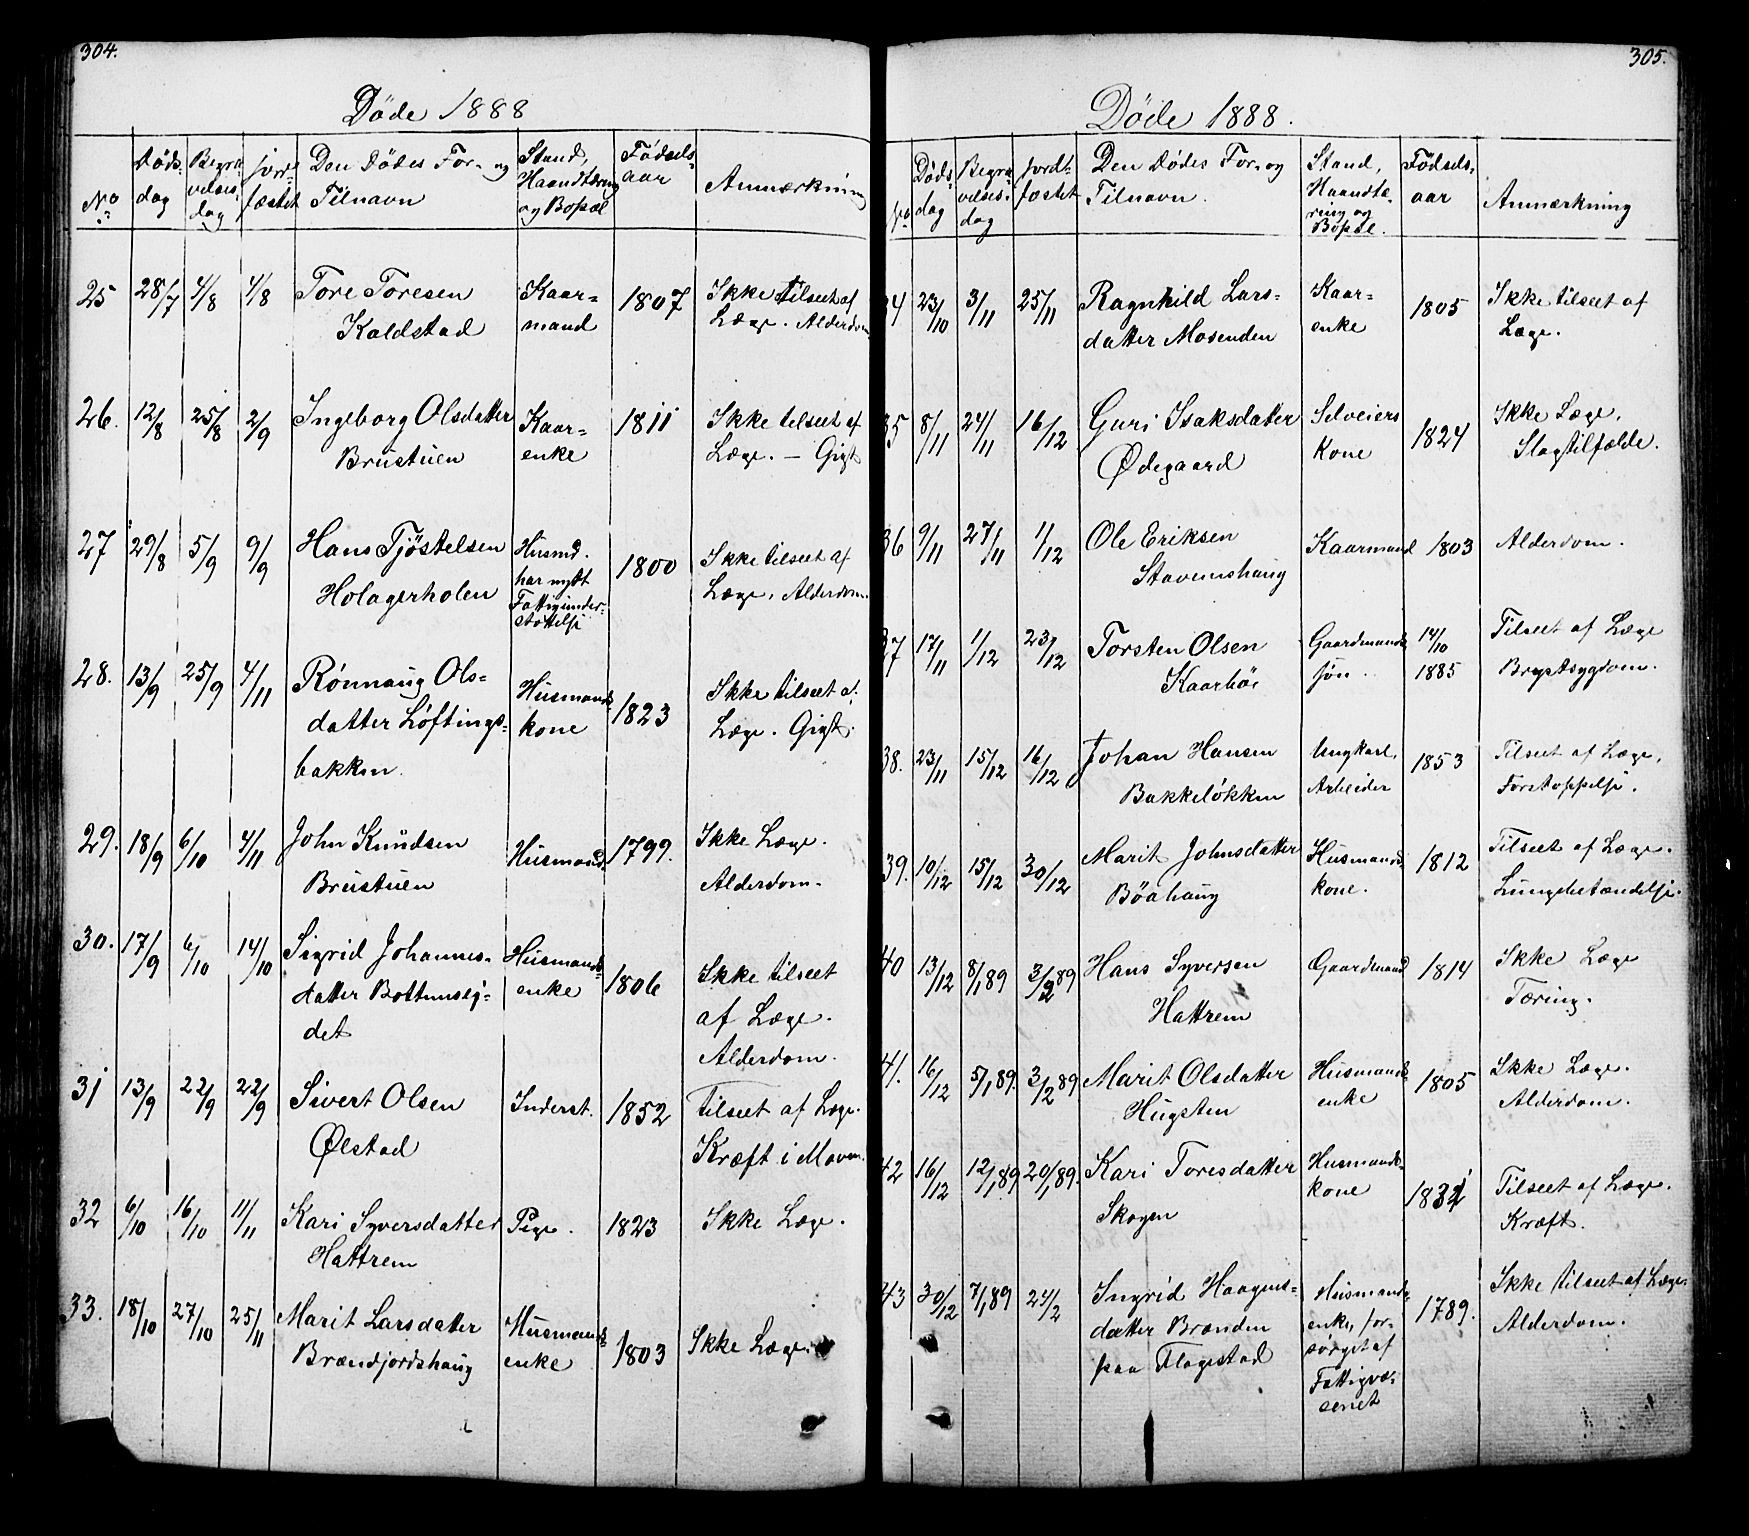 304.
Döde 1888
No
Döds-
dag
Begra-
velses-
dag
jord-
fæstet
Den Dödes For- og
Tilnavn
Stand,
Haandtæring
og Bopæl
Födsels-
aar
Anmærkning
25 28/7 4/8 4/8 Tore Toresen
Kaldstad
Kaar-
mand
1807
Ikke tilseet af
Læge. Alderdom
26. 12/8 25/8 2/9 Ingeborg Olsdatter
Brustuen
Kaar-
enke
1811
Ikke tilseet af
Læge. – Gigt
27 29/8 5/9 9/9 Hans Tjöstelsen
Holagerholen
Husmd.
har nydt
Fattigunder-
støttelse
1800
Ikke tilseet af
Læge. Alderdom.
28. 13/9 25/9 4/11 Rønnaug Ols-
datter Løftings-
bakken.
Husmands-
kone
1823
Ikke tilseet af
Læge. Gigt.
29. 18/9 6/10 4/11 John Knudsen
Brustuen
Husmand.
1799.
Ikke Læge.
Alderdom.
30. 17/9 6/10 14/10 Sigrid Johannes-
datter Bottemsej-
det
Husmands-
enke
1806
Ikke tilseet
af Læge.
Alderdom.
31 13/9 22/9 22/9 Sivert Olsen
Ølstad
Inderst.
1852
Tilseet af Læge.
Kræft i Maven.
32 6/10 16/10 11/11 Kari Syversdatter
Hattrem
Pige.
1823
Ikke Læge.
33. 18/10 27/10 25/11 Marit Larsdatter
Brændjordshaug
Husmands-
enke
1803
Ikke Læge.
305.
Döde 1888.
No
Döds-
dag
Begra-
velses-
dag
jordt-
fæstet
Den Dödes For- og
Tilnavn.
Stand,
Haandtæ-
ring og
Bopæl.
Födsels-
aar
Anmærkning
34 23/10 3/11 25/11 Ragnhild Lars-
datter Mosenden
Kaar-
enke
1805
Ikke tilseet af
Læge.
35 8/11 24/11 16/12 Guri Isaksdatter
Ødegaard
Selveiers
Kone
1824
Ikke Læge.
Slagtilfælde.
36 9/11 27/11 1/12 Ole Eriksen
Stavemshaug
Kaarmand
1803
Alderdom.
37 17/11 1/12 23/12 Torsten Olsen
Kaarbö
Gaardmands
søn.
14/10
1885
Tilseet af Læge
Brystsygdom.
38. 23/11 15/12 16/12 Johan Hansen
Bakkeløkken
Ungkarl,
Arbeider
1853
Tilseet af Læge.
Forstoppelse.
39. 10/12 15/12 30/12 Marit Johnsdatter
Böahaug
Husmands-
kone.
1812
Tilseet af Læge.
Lungebetændelse.
40 13/12 8/1 89 3/2 89 Hans Syversen
Hattrem
Gaardmand
1814
Ikke Læge
Tæring.
41. 16/12 5/1 89. 3/2 89 Marit Olsdatter
Hugsten
Husmands-
enke
1805
Ikke Læge.
Alderdom.
42 16/12 12/1 89 20/1 89. Kari Toresdatter
Skogen
Husmands-
kone
1832
Tilseet af Læge.
Kræft.
43 30/12 7/1 89 24/2 Ingrid Haagens-
datter Brænden
paa Flagestad
Husmands-
enke, for-
sörget af
Fattigvæ-
senet
1789.
Ikke tilseet af Læge.
Alderdom.